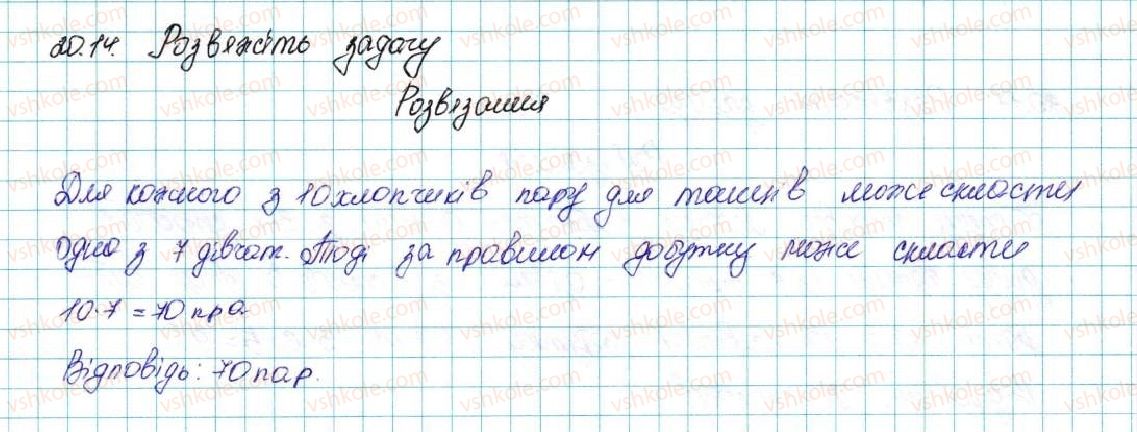 20.14. Розвяжіть задачу
Розвязання
Для кожного з 10 хлопчиків пару для танців може скласти
одна з 7 дівчат. Тоді за правилом добутку може скласти
10·7 = 70 пра.
Відповідь: 70 пар.